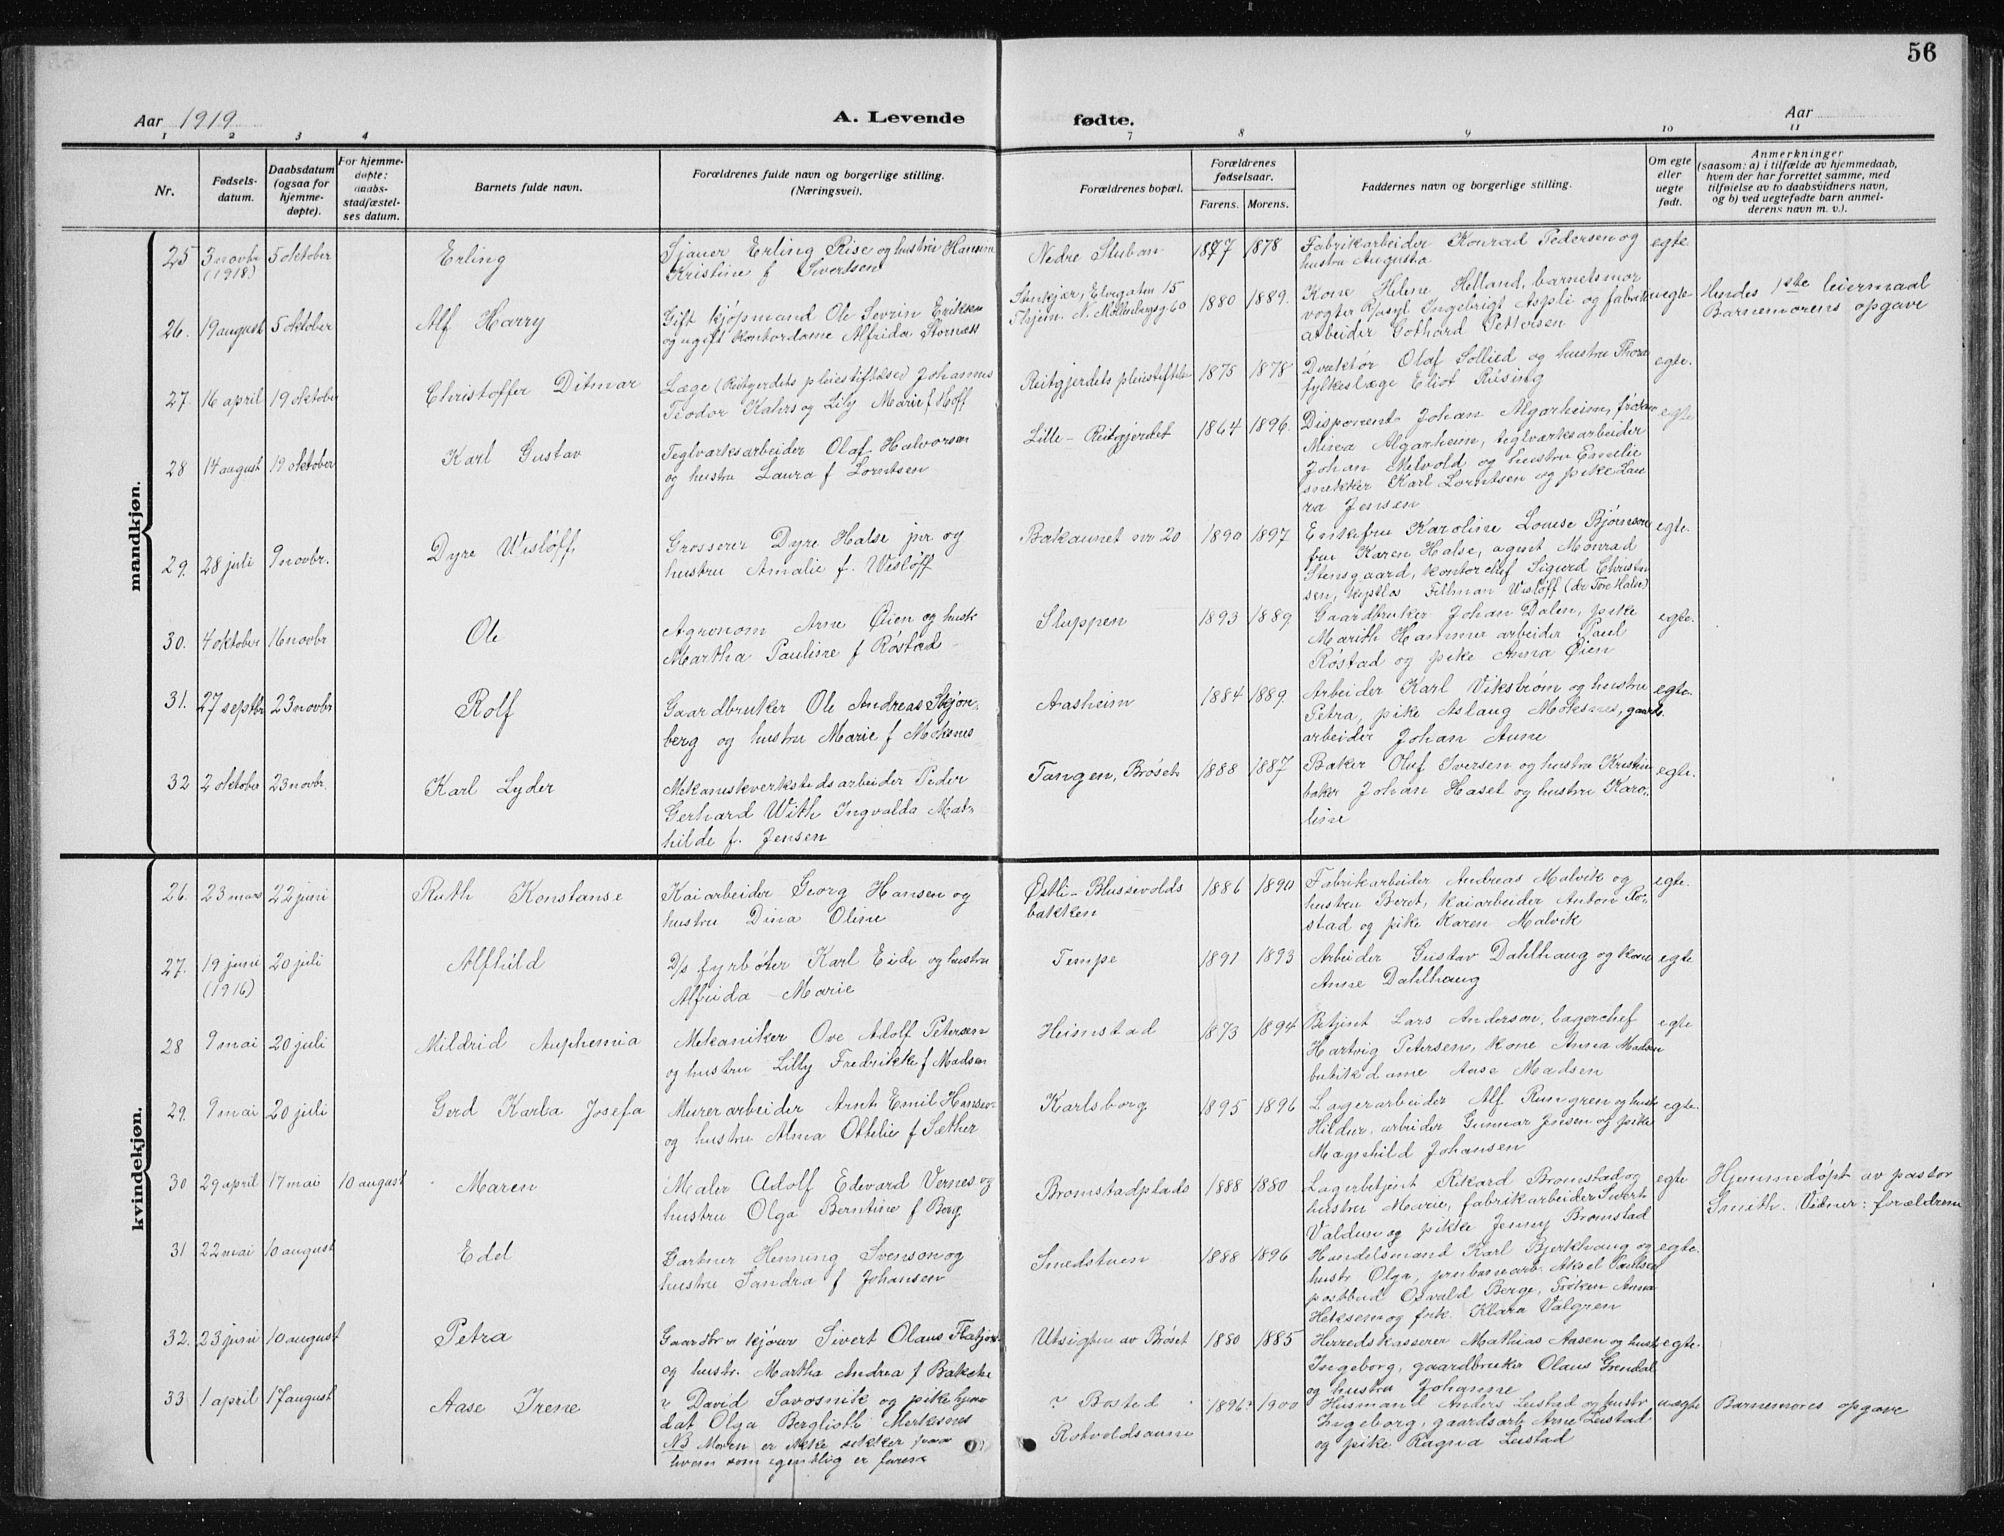 56
Aar 1919
A. Levende fødte.
Aar
1 2 3 4 7 8 9 10 11
Nr.
Fødsels-
datum.
Daabsdatum
(ogsaa for
hjemme-
døpte).
For hjemme-
døpte:
daabs-
stadfæstel-
ses datum.
Barnets fulde navn.
Forældrenes fulde navn og borgerlige stilling.
(Næringsvei).
Forældrenes bopæl.
Forældrenes
fødselsaar.
Farens. Morens.
Faddernes navn og borgerlige stilling.
Om egte
eller
uegte
født.
Anmerkninger
(saasom: a) i tilfælde av hjemmedaab,
hvem der har forrettet samme, med
tilføielse av to daabsvidners navn,
og b) ved uegtefødte barn anmel-
derens navn m. v.).
mandkjøn.
25 3 novbr (1918) 5 oktober Erling
Sjauer Erling Rise og hustru Hansine
Kristine f Sivertsen
Nedre Stuban 1877 1878
Fabrikarbeider Konrad Pedersen og
hustru Augusta
egte
26. 19 august 5 oktober Alf Harry
Gift kjøpmand Ole Sevrin Eriksen
og ugift kontordame Alfrida Stornæss
Stenkjær, Elvegaten 15
Thjem. N. Møllenbergsg 60
1880 1889.
Kone Helene Helland, barnetsmor
vogter Rp.asyl Ingebrigt Aspli og fabrik
arbeider Gothard Pettersen
uegte
Hendes 1ste leiermaal
Barnemorens opgave
27. 16 april 19 oktober Christoffer Ditmar
Læge (Reitgjerdets pleiestiftelse) Johannes
Teodor Kahrs og Lily Marie f Hoff
Reitgjerdets pleiestiftelse 1875 1878
Direktør Olaf Sollied og hustru Thora
fylkeslæge Eliot Riising
egte.
28 14 august 19 oktober Karl Gustav
Teglværksarbeider Olaf Halvorsen
og hustru Laura f Lorntsen
Lille-Reitgjerdet 1864 1896.
Disponent Johan Algarheim, frøken
Minea Algarheim, teglværksarbeider
Johan Melvold og hustru Emelie
snekker Karl Lorntsen og pike Lau
ra Jensen
egte
29. 28 juli 9 novbr. Dyre Wisløff
Grosserer Dyre Halse jnr og
hustru Amalie f. Wisløff
Bakaunet nr 20 1890 1897
Enkefru Karoline Louise Bjørnson
fru Karen Halse, agent Monrad
Stensgaard, kontorchef Sigurd Christen
sen, Tillman Wisløff (dr Tore Halse)
egte.
30. 4 oktober 16 novbr Ole
Agronom Arne Øien og hustr.
Martha Pauline f Røstad
Sluppen 1893 1889
Gaardbruker Johan Dalen, pike
Marith Hammer arbeider Paul
Røstad og pike Anna Øien
egte.
31. 27 septbr 23 novbr Rolf
Gaardbruker Ole Andreas Skjøn-
berg og hustru Marie f Moksnes
Aasheim 1884 1889.
Arbeider Karl Vikstrøm og hustru
Petra, pike Aslaug Moksnes, gaards
arbeider Johan Aune
egte.
32 2 oktober 23 novbr. Karl Lyder
Mekaniskverkstedsarbeider Peder
Gerhard With Ingvalda Mat-
hilde f. Jensen
Tangen, Brøset 1888 1887
Baker Olaf Iversen og hustru Kristine
baker Johan Haset og hustru Karo-
line
egte.
kvindekjøn.
26. 23 mars 22 juni Ruth Konstanse
Kaiarbeider Georg Hansen og
hustru Dina Oline
Østli-Blussevolds
bakken
1886 1890
Fabrikarbeider Andreas Malvik og
hustru Beret, kaiarbeider Anton Rø-
stad og pike Karen Malvik
egte.
27. 19 juni (1916) 20 juli Alfhild
D/s fyrbøter Karl Eide og hustru
Alfrida Marie
Tempe 1891 1893
Arbeider Gustav Dahlhaug og kone
Anne Dahlhaug
egte
28 9 mai 20 juli Mildrid Auphemia
Mekaniker Ove Adolf Petersen
og hustru Lilly Fredrikke f Madsen
Heimstad 1873 1894
Betjent Lars Anderson, lagerchef
Hartvig Petersen, kone Anna Madsen
butikdame Aase Madsen
egte
29. 9 mai 20 juli Gerd Karla Josefa
Murerarbeider Arnt Emil Hansen
og hustru Alma Ottelie f Sæther
Karlsborg 1895 1896
Lagerarbeider Alf Rungren og hustr.
Hildur. arbeider Gunnar Jensen og pike
Magnhild Johansen
egte.
30 29 april 17 mai 10 august Maren
Maler Adolf Edevard Vernes og
hustru Olga Berntine f Berg
Bromstadplads 1888 1880
Lagerbetjent Rikard Bromstad og
hustru Marie, fabrikarbeider Sivert
Valdun og pikke Jenny Bromstad
egte
Hjemmedøpt av pastor
Smith. Vidner: forældrene
31 22 mai 10 august Edel
Gartner Henning Svenson og
hustru Sandra f Johansen
Smedstuen 1888 1896
Handelsmand Karl Bjerkhaug og
hustr Olga, jernbanearb. Aksel Paulsen
postbud Osvald Berge, Frøken Anna
og frk. Klara Valgren
egte.
32. 23 juni 10 august Petra
Gaardbr kjører Sivert Olaus Flatjord
og hustr. Martha Andrea f Bakche
Utsigten av Brøset 1880 1885
Herredskasserer Mathias Aasen og hustr
Ingeborg, gaardbruker Olaus Grendal
og hustru Johanne
egte.
33 1 april 17 august Aase Irene
? David Savosnik og pike hjem
dat Olga Bergliott Merkesnes
NB Moren er ikke sikker paa
hvem som egentlig er faren
? Bosted
Rotvoldsaune
1896? 1900
Husmand Anders Leistad og hustr
Ingeborg, gaardsarb Arne Leistad
og pike Ragna Leistad
uegte
Barnemores opgave